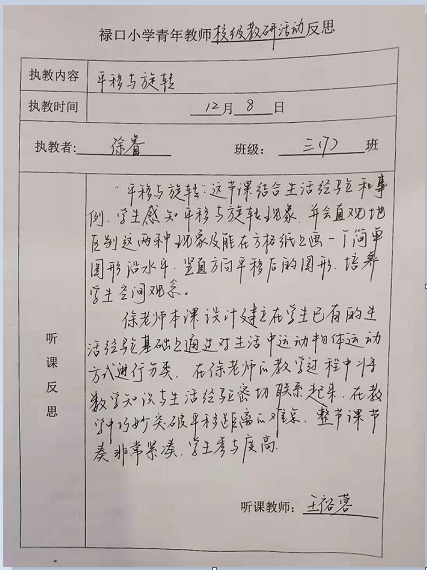 禄口小学青年教师校级教研活动反思
执教内容 平移与旋转
执教时间 12月8日
执教者: 徐睿 班级: 三(7) 班
听课反思
“平移与旋转”这节课结合生活经验和事
例,学生感知平移与旋转现象,并会直观地
区别这两种现象及能在方格纸上画一个简单
图形沿水平、竖直方向平移后的图形,培养
学生空间观念。
徐老师本课设计建立在学生已有的生
活经验基础上通过对生活中运动物体运动
方式进行分类.在徐老师的教学过程中将
数学知识与生活经验密切联系起来.在教
学中巧妙突破平移距离的难点.整节课节
奏非常紧凑,学生参与度高.
听课教师: 王裕蓉